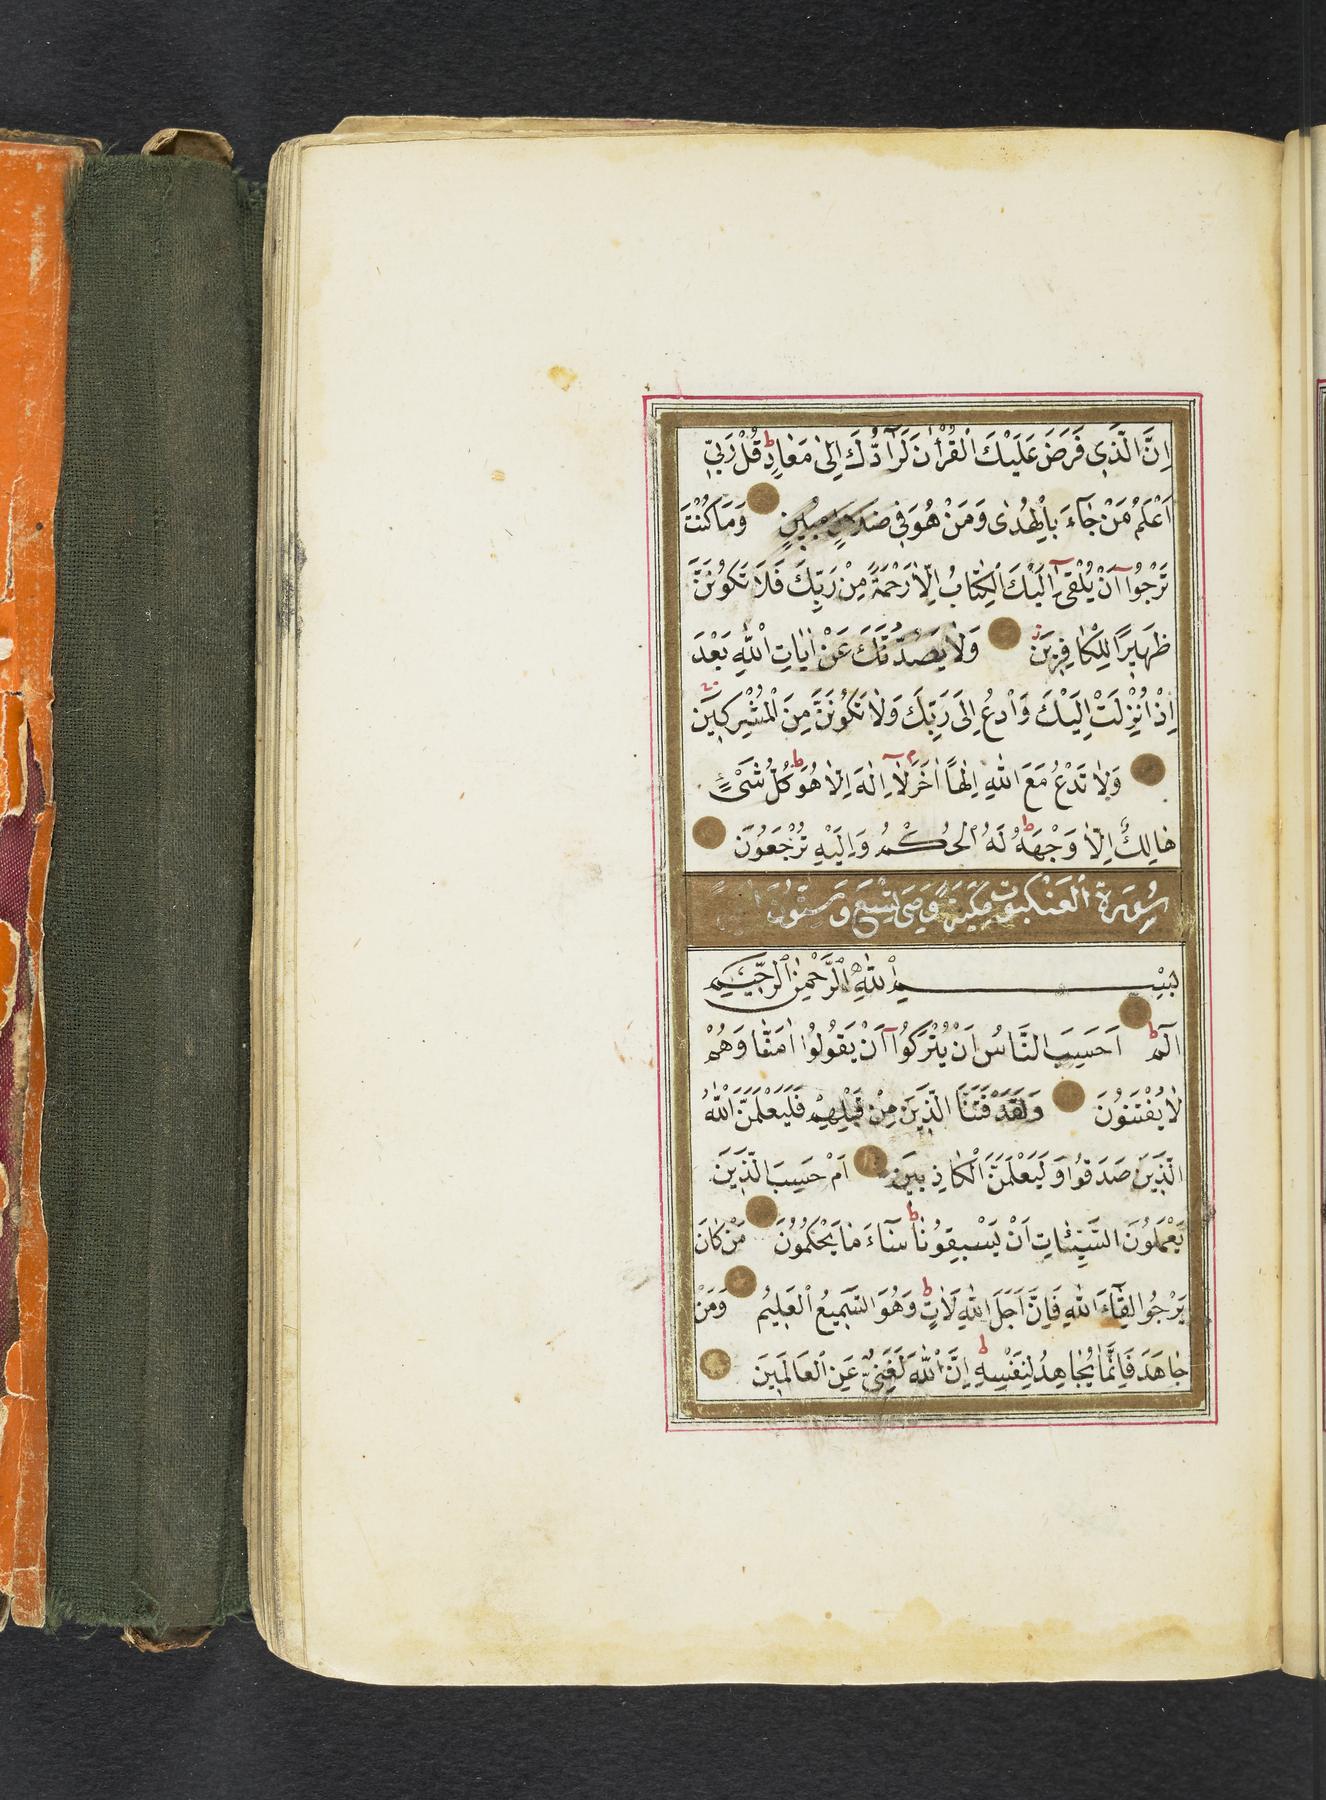 اِنَّ الَّذِى فَرَضَ عَلَيْكَ الْقُرْاٰنَ لَرَآدُّكَ اِلٰى مَعَادٍ ط قُلْ رَبِّى
اَعْلَمُ مَنْ جَآءَ بِالْهُدٰى وَمَنْ هُوَ فِى ضَلَالٍ مُبِينٍ وَمَا كُنْتَ
تَرْجُوا اَنْ يُلْقٰى اِلَيْكَ الْكِتَابُ اِلَّا رَحْمَةً مِنْ رَبِّكَ فَلَا تَكُونَنَّ
ظَهِيرًا لِلْكَافِرِينَ ز وَلَا يَصُدُّنَّكَ عَنْ اٰيَاتِ اللّٰهِ بَعْدَ
اِذْ اُنْزِلَتْ اِلَيْكَ وَادْعُ اِلٰى رَبِّكَ وَلَا تَكُونَنَّ مِنَ الْمُشْرِكِينَ
وَلَا تَدْعُ مَعَ اللّٰهِ اِلٰهًا اٰخَرَ م لَا اِلٰهَ اِلَّا هُوَ ط كُلُّ شَىْءٍ
هَالِكٌ اِلَّا وَجْهَهُ ط لَهُ الْحُكْمُ وَاِلَيْهِ تُرْجَعُونَ
سُورَةُ الْعَنْكَبُوتِ مَكِّيَّةٌ وَهِىَ تِسْعٌ وَسِتُّونَ
بِسْمِ اللّٰهِ الرَّحْمٰنِ الرَّحِيمِ
الٓمٓ ط اَحَسِبَ النَّاسُ اَنْ يُتْرَكُوا اَنْ يَقُولُوا اٰمَنَّا وَهُمْ
لَا يُفْتَنُونَ وَلَقَدْ فَتَنَّا الَّذِينَ مِنْ قَبْلِهِمْ فَلَيَعْلَمَنَّ اللّٰهُ
الَّذِينَ صَدَقُوا وَلَيَعْلَمَنَّ الْكَاذِبِينَ اَمْ حَسِبَ الَّذِينَ
يَعْمَلُونَ السَّيِّئَاتِ اَنْ يَسْبِقُونَا ط سَآءَ مَا يَحْكُمُونَ مَنْ كَانَ
يَرْجُوا لِقَآءَ اللّٰهِ فَاِنَّ اَجَلَ اللّٰهِ لَاٰتٍ ط وَهُوَ السَّمِيعُ الْعَلِيمُ وَمَنْ
جَاهَدَ فَاِنَّمَا يُجَاهِدُ لِنَفْسِهِ ط اِنَّ اللّٰهَ لَغَنِىٌّ عَنِ الْعَالَمِينَ